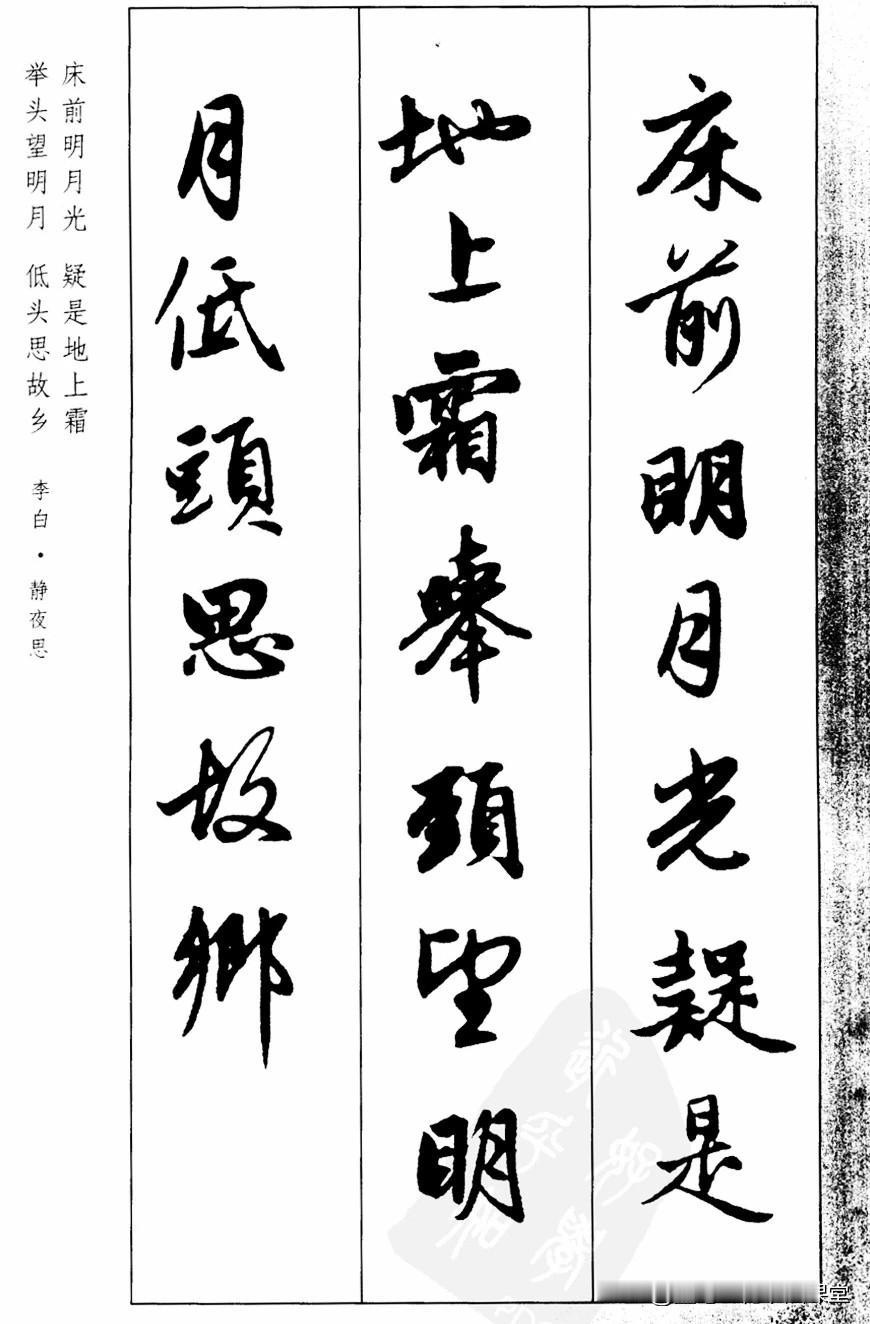 床前明月光疑是
地上霜舉頭望明
月低頭思故鄉
床前明月光 疑是地上霜
举头望明月 低头思故乡 李白·静夜思
课堂